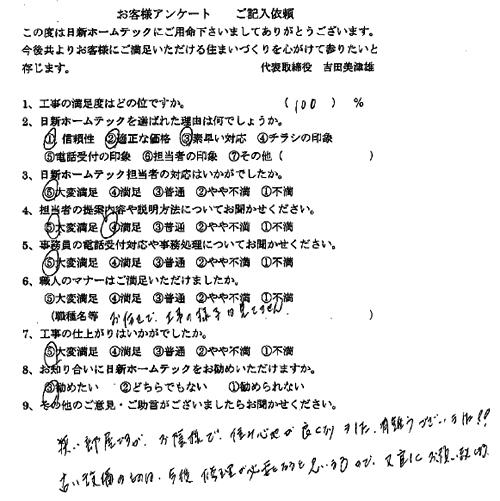 お客様アンケート　ご記入依頼
この度は日新ホームテックにご用命下さいましてありがとうございます。
今後共よりお客様にご満足いただける住まいづくりを心がけて参りたいと
存じます。　代表取締役　吉田美津雄
1、工事の満足度はどの位ですか。　(100)　%
2、日新ホームテックを選ばれた理由は何でしょうか。
①信頼性　②適正な価格　③素早い対応　④チラシの印象
⑤電話受付の印象　⑥担当者の印象　⑦その他（　　）
3、日新ホームテック担当者の対応はいかがでしたか。
⑤大変満足　④満足　③普通　②やや不満　①不満
4、担当者の提案内容や説明方法についてお聞かせください。
⑤大変満足　④満足　③普通　②やや不満　①不満
5、事務員の電話受付対応や事務処理についてお聞かせください。
⑤大変満足　④満足　③普通　②やや不満　①不満
6、職人のマナーはご満足いただけましたか。
⑤大変満足　④満足　③普通　②やや不満　①不満
(職種名等　お任せで、工事の様子は見てません　)
7、工事の仕上がりはいかがでしたか。
⑤大変満足　④満足　③普通　②やや不満　①不満
8、お知り合いに日新ホームテックをお勧めいただけますか。
③勧めたい　②どちらでもない　①勧められない
9、その他のご意見・ご助言がございましたらお聞かせください。
狭い部屋ですが、お陰様で、住み心地が良くなりました。有難うございました!!
古い設備の為、今後修理が必要になると思いますので、又宜しくお願い致します